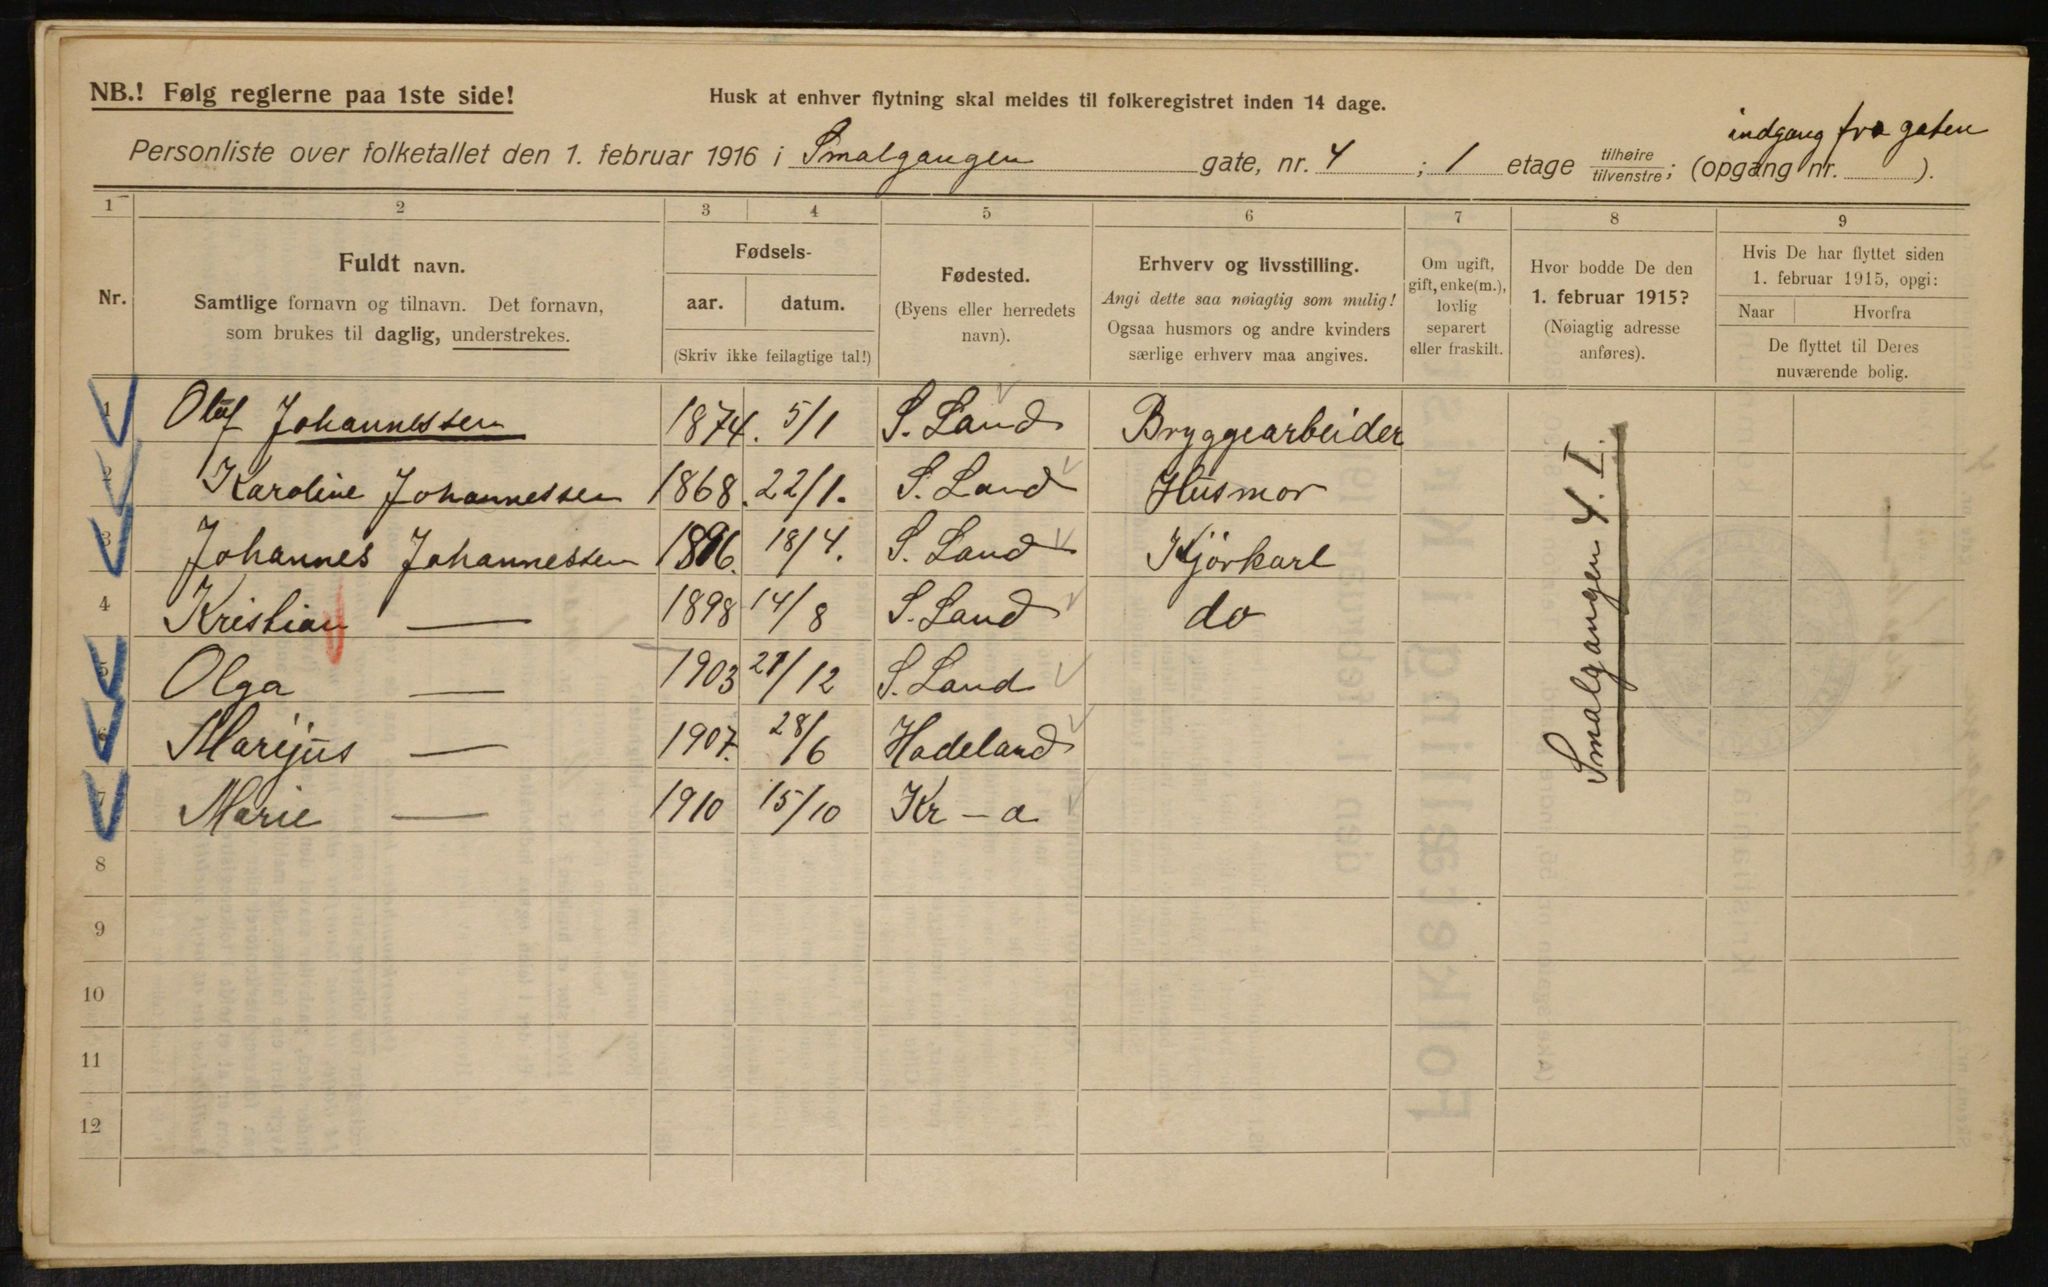 NB.! Følg reglerne paa 1ste side!
Husk at enhver flytning skal meldes til folkeregistret inden 14 dage.
indgang fra gaten
Personliste over folketallet den 1. februar 1916 i Smalgangen gate, nr. 4 ; 1 etage tilhøire/tilvenstre; (opgang nr. ).
1 2 3 4 5 6 7 8 9
Nr.
Fuldt navn.
Samtlige fornavn og tilnavn. Det fornavn,
som brukes til daglig, understrekes.
Fødsels-
aar. datum.
(Skriv ikke feilagtige tal!)
Fødested.
(Byens eller herredets
navn).
Erhverv og livsstilling.
Angi dette saa nøiagtig som mulig!
Ogsaa husmors og andre kvinders
særlige erhverv maa angives.
Om ugift,
gift, enke(m.),
lovlig
separert
eller fraskilt.
Hvor bodde De den
1. februar 1915?
(Nøiagtig adresse
anføres).
Hvis De har flyttet siden
1. februar 1915, opgi:
Naar Hvorfra
De flyttet til Deres
nuværende bolig.
1 Oluf Johannessen 1874. 5/1 S. Land Bryggearbeider
2 Karoline Johannessen 1868. 22/1. S. Land Husmor
3 Johannes Johannessen 1896. 18/4. S. Land Kjørkarl
4 Kristian — 1898 14/8 S. Land do
5 Olga — 1903 21/12 S. Land
6 Marijus — 1907. 28/6 Hadeland
7 Marie — 1910 15/10 Kr-a
Smalgangen 4. I.
8
9
10
11
12